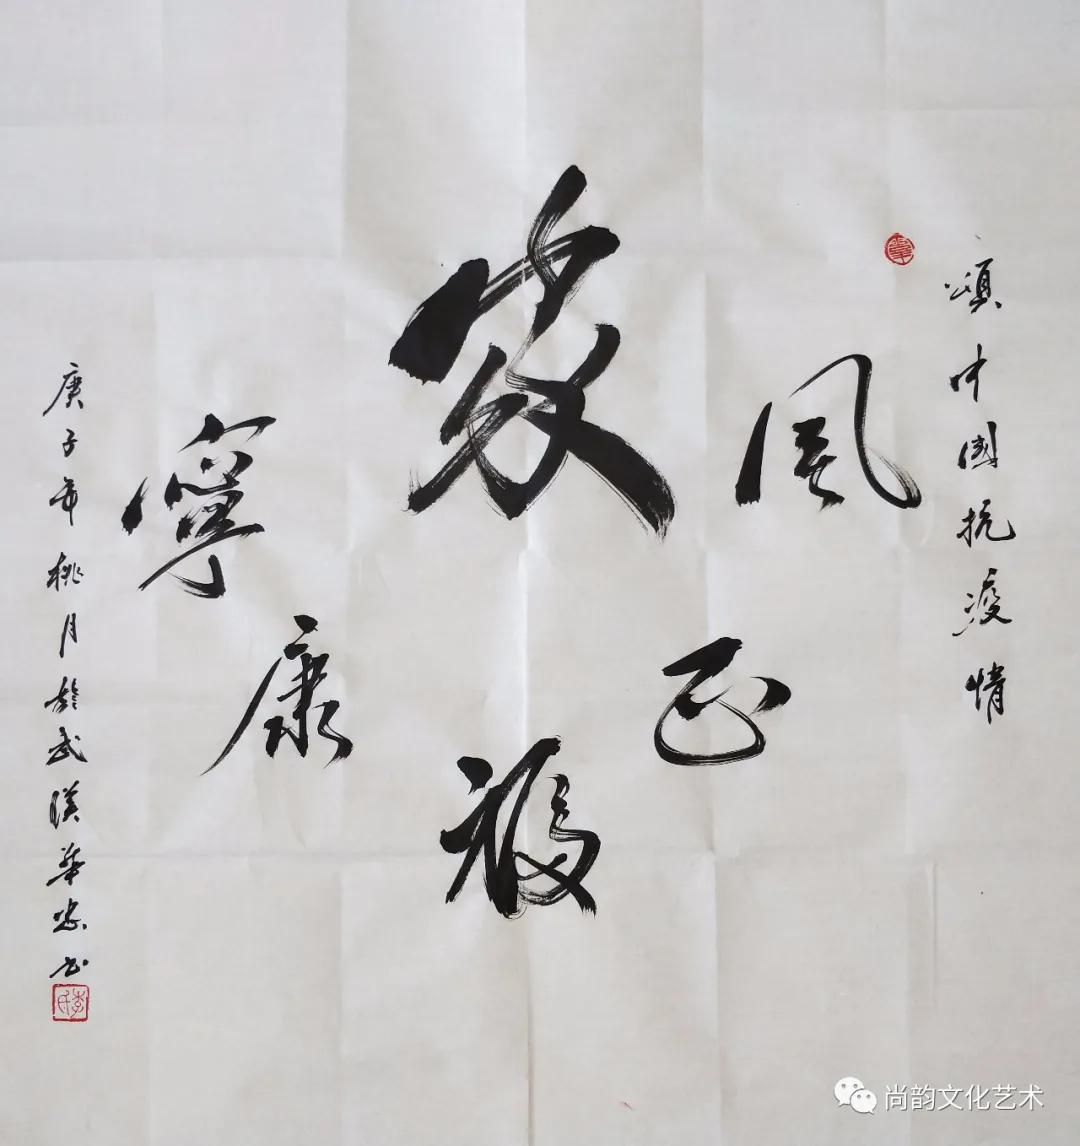 頌中國抗疫情
風
正
福
康
寧
庚子年桃月於武漢華書
李氏
尚韵文化艺术